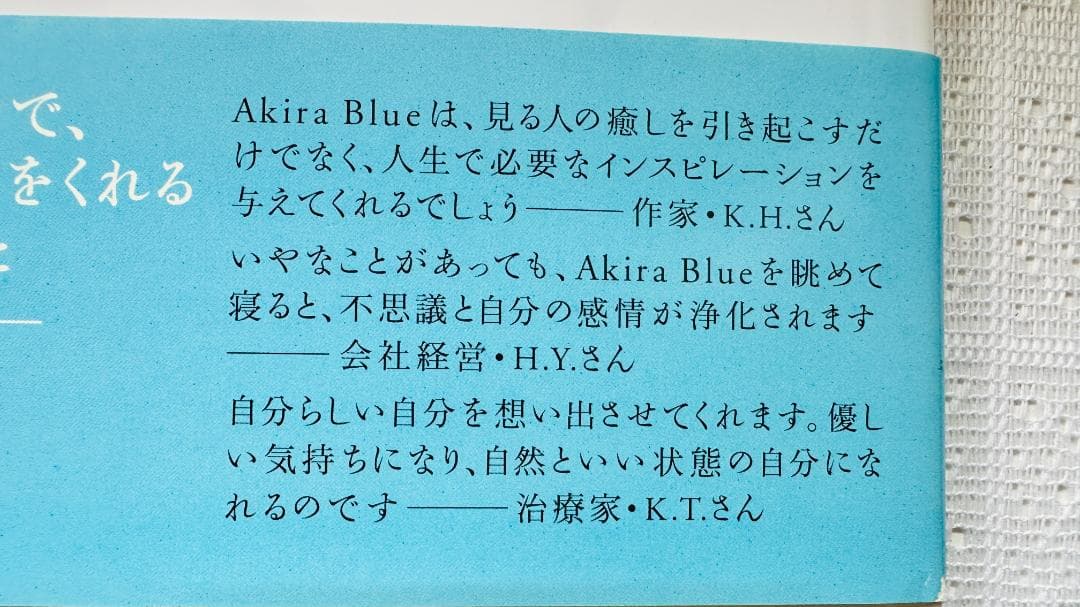 で、
をくれる
Akira Blueは、見る人の癒しを引き起こすだ
けでなく、人生で必要なインスピレーションを
与えてくれるでしょう――作家・K.H.さん
いやなことがあっても、Akira Blueを眺めて
寝ると、不思議と自分の感情が浄化されます
――会社経営・H.Y.さん
自分らしい自分を想い出させてくれます。優し
い気持ちになり、自然といい状態の自分にな
れるのです――治療家・K.T.さん